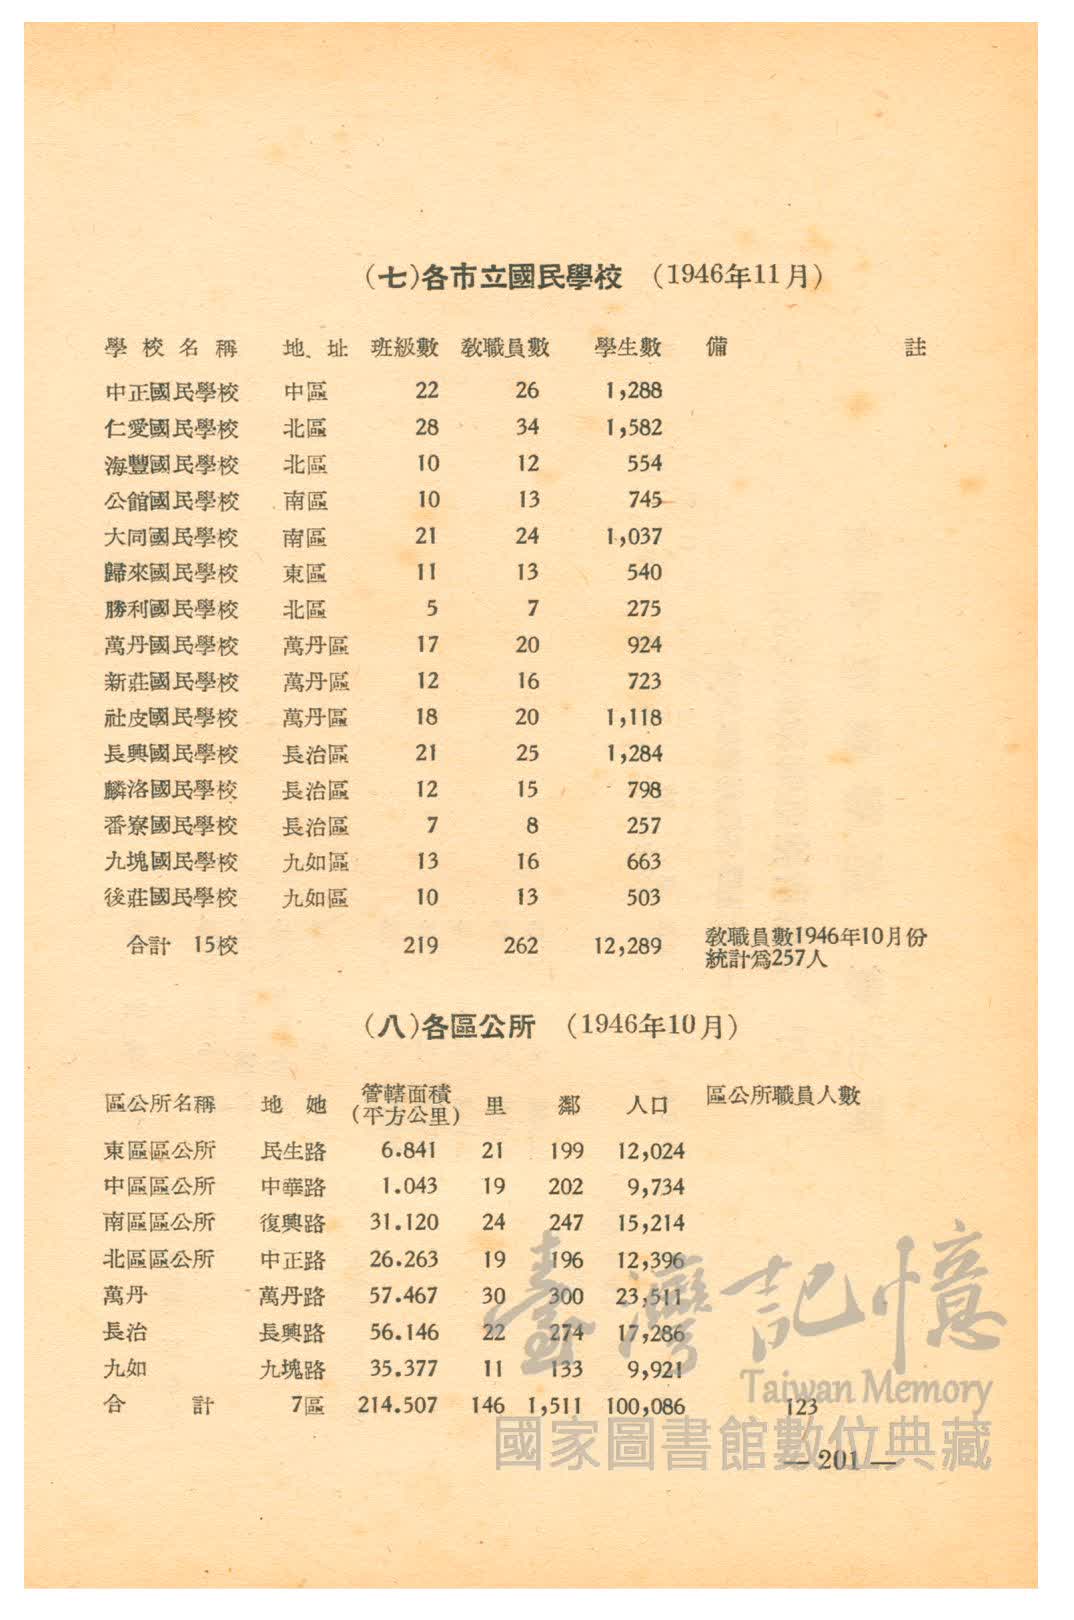 (七)各市立國民學校 (1946年11月)
學校名稱 地址 班級數 敎職員數 學生數 備註
中正國民學校 中區 22 26 1,288
仁愛國民學校 北區 28 34 1,582
海豐國民學校 北區 10 12 554
公館國民學校 南區 10 13 745
大同國民學校 南區 21 24 1,037
歸來國民學校 東區 11 13 540
勝利國民學校 北區 5 7 275
萬丹國民學校 萬丹區 17 20 924
新莊國民學校 萬丹區 12 16 723
社皮國民學校 萬丹區 18 20 1,118
長興國民學校 長治區 21 25 1,284
麟洛國民學校 長治區 12 15 798
番寮國民學校 長治區 7 8 257
九塊國民學校 九如區 13 16 663
後莊國民學校 九如區 10 13 503
合計 15校 219 262 12,289 敎職員數1946年10月份
統計爲257人
(八)各區公所 (1946年10月)
區公所名稱 地她 管轄面積(平方公里) 里 鄰 人口 區公所職員人數
東區區公所 民生路 6.841 21 199 12,024
中區區公所 中華路 1.043 19 202 9,734
南區區公所 復興路 31.120 24 247 15,214
北區區公所 中正路 26.263 19 196 12,396
萬丹 萬丹路 57.467 30 300 23,511
長治 長興路 56.146 22 274 17,286
九如 九塊路 35.377 11 133 9,921
合計 7區 214.507 146 1,511 100,086 123
— 201 —
臺灣記憶
Taiwan Memory
國家圖書館數位典藏